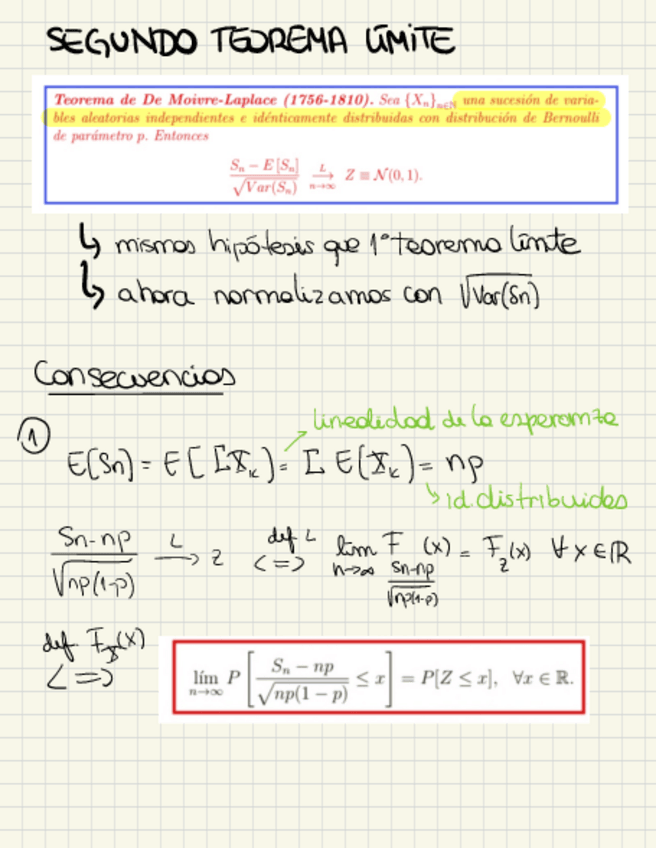 SEGUNDO TEOREMA LÍMITE
Teorema de De Moivre-Laplace (1756-1810). Sea {Xₙ}ₙ∈ℕ una sucesión de varia-
bles aleatorias independientes e idénticamente distribuidas con distribución de Bernoulli
de parámetro p. Entonces
(Sₙ − E[Sₙ]) / √Var(Sₙ) →ᴸ n→∞ Z ≡ N(0, 1).
↳ mismas hipótesis que 1º teorema límite
↳ ahora normalizamos con √Var(Sn)
Consecuencias
linealidad de la esperanza
① E(Sn) = E[ΣXₖ) = Σ E(Xₖ) = np
↳ id. distribuidas
(Sn-np) / √np(1-p) →ᴸ Z def L <=> lim n→∞ F (Sn-np)/√np(1-p) (x) = F_Z(x) ∀x∈ℝ
def F_X(x)
<=>
lím n→∞ P[(Sₙ − np) / √np(1 − p) ≤ x] = P[Z ≤ x], ∀x ∈ ℝ.